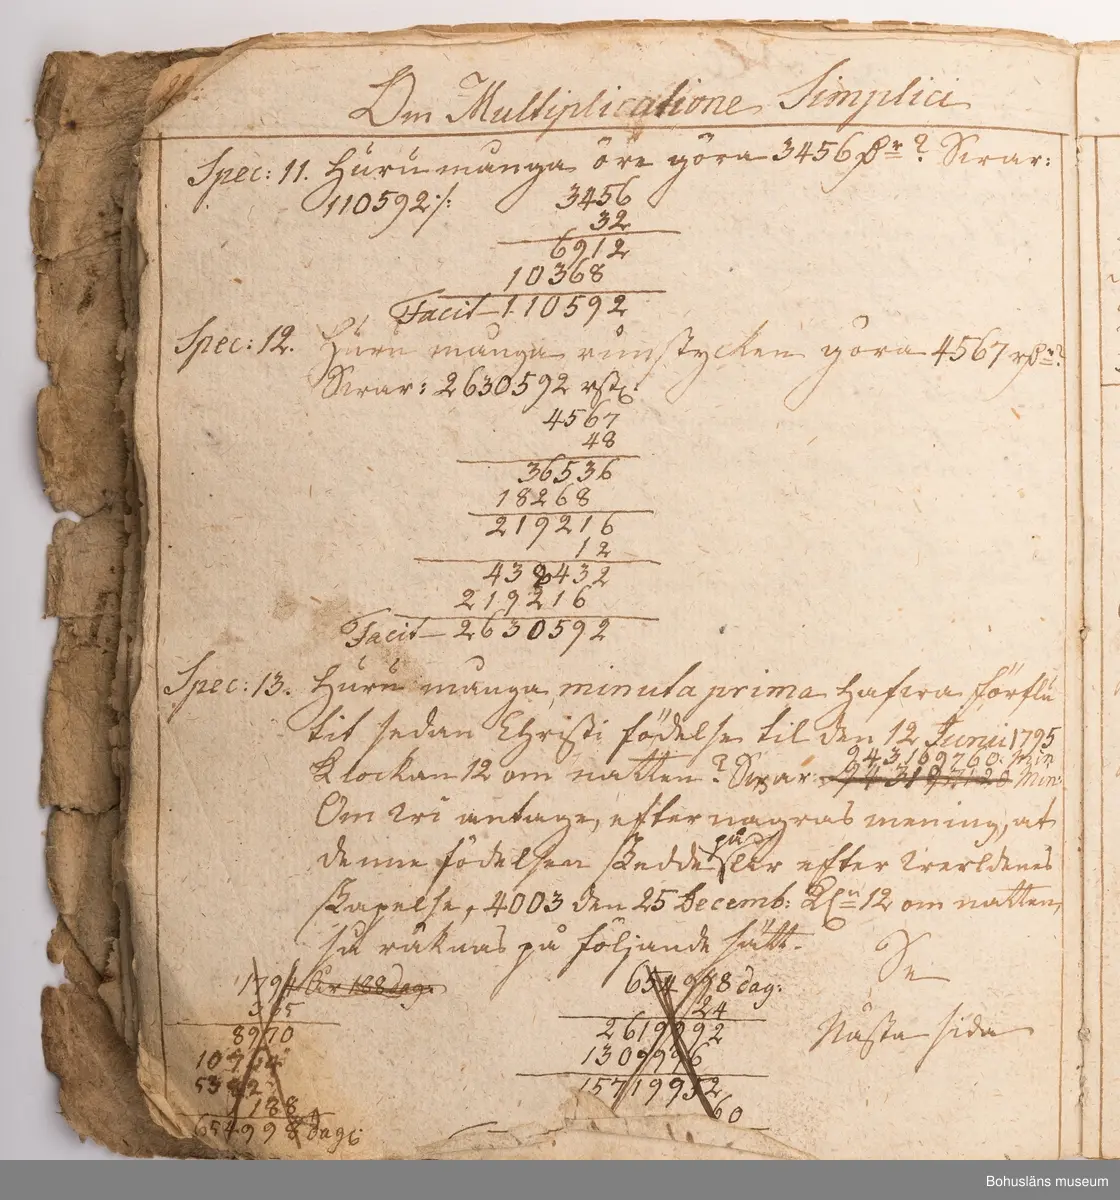 Om Multiplicatione Simplici
Spec: 11. Huru många öre göra 3456 Dr? Swar:
110592 ·/:
3456
32
6912
10368
Facit — 110592
Spec: 12. Huru många runstycken göra 4567 rDr?
Swar: 2630592 rst:
4567
48
36536
18268
219216
12
438432
219216
Facit — 2630592
Spec: 13. Huru många minuta prima hafwa förflu
tit sedan Christi födelse til den 12 Junii 1795
943169760. Min
Klockan 12 om natten? Swar: Min:
Om wi antage, efter någras mening, at
denne födelsen skedde på efter werldenes
skapelse, 4003 den 25 Decemb: Kl: 12 om natten,
så räknas på följande sätt. Se
Nästa sida
1794 År 188 dag:
365
8970
10764
5382
188
654998 dag:
654998 dag:
24
2619992
1309996
15719952
60
Bohusläns museum